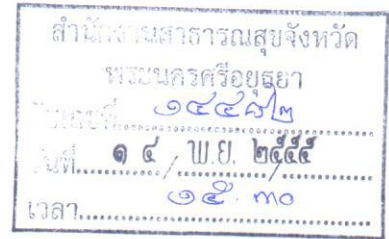 สำนักงานสาธารณสุขจังหวัด
พระนครศรีอยุธยา
๑๔๔๘๒
วันที่ ๑ ๔ / พ.ย. ๒๕๕๕
เวลา ๑๕.๓๐